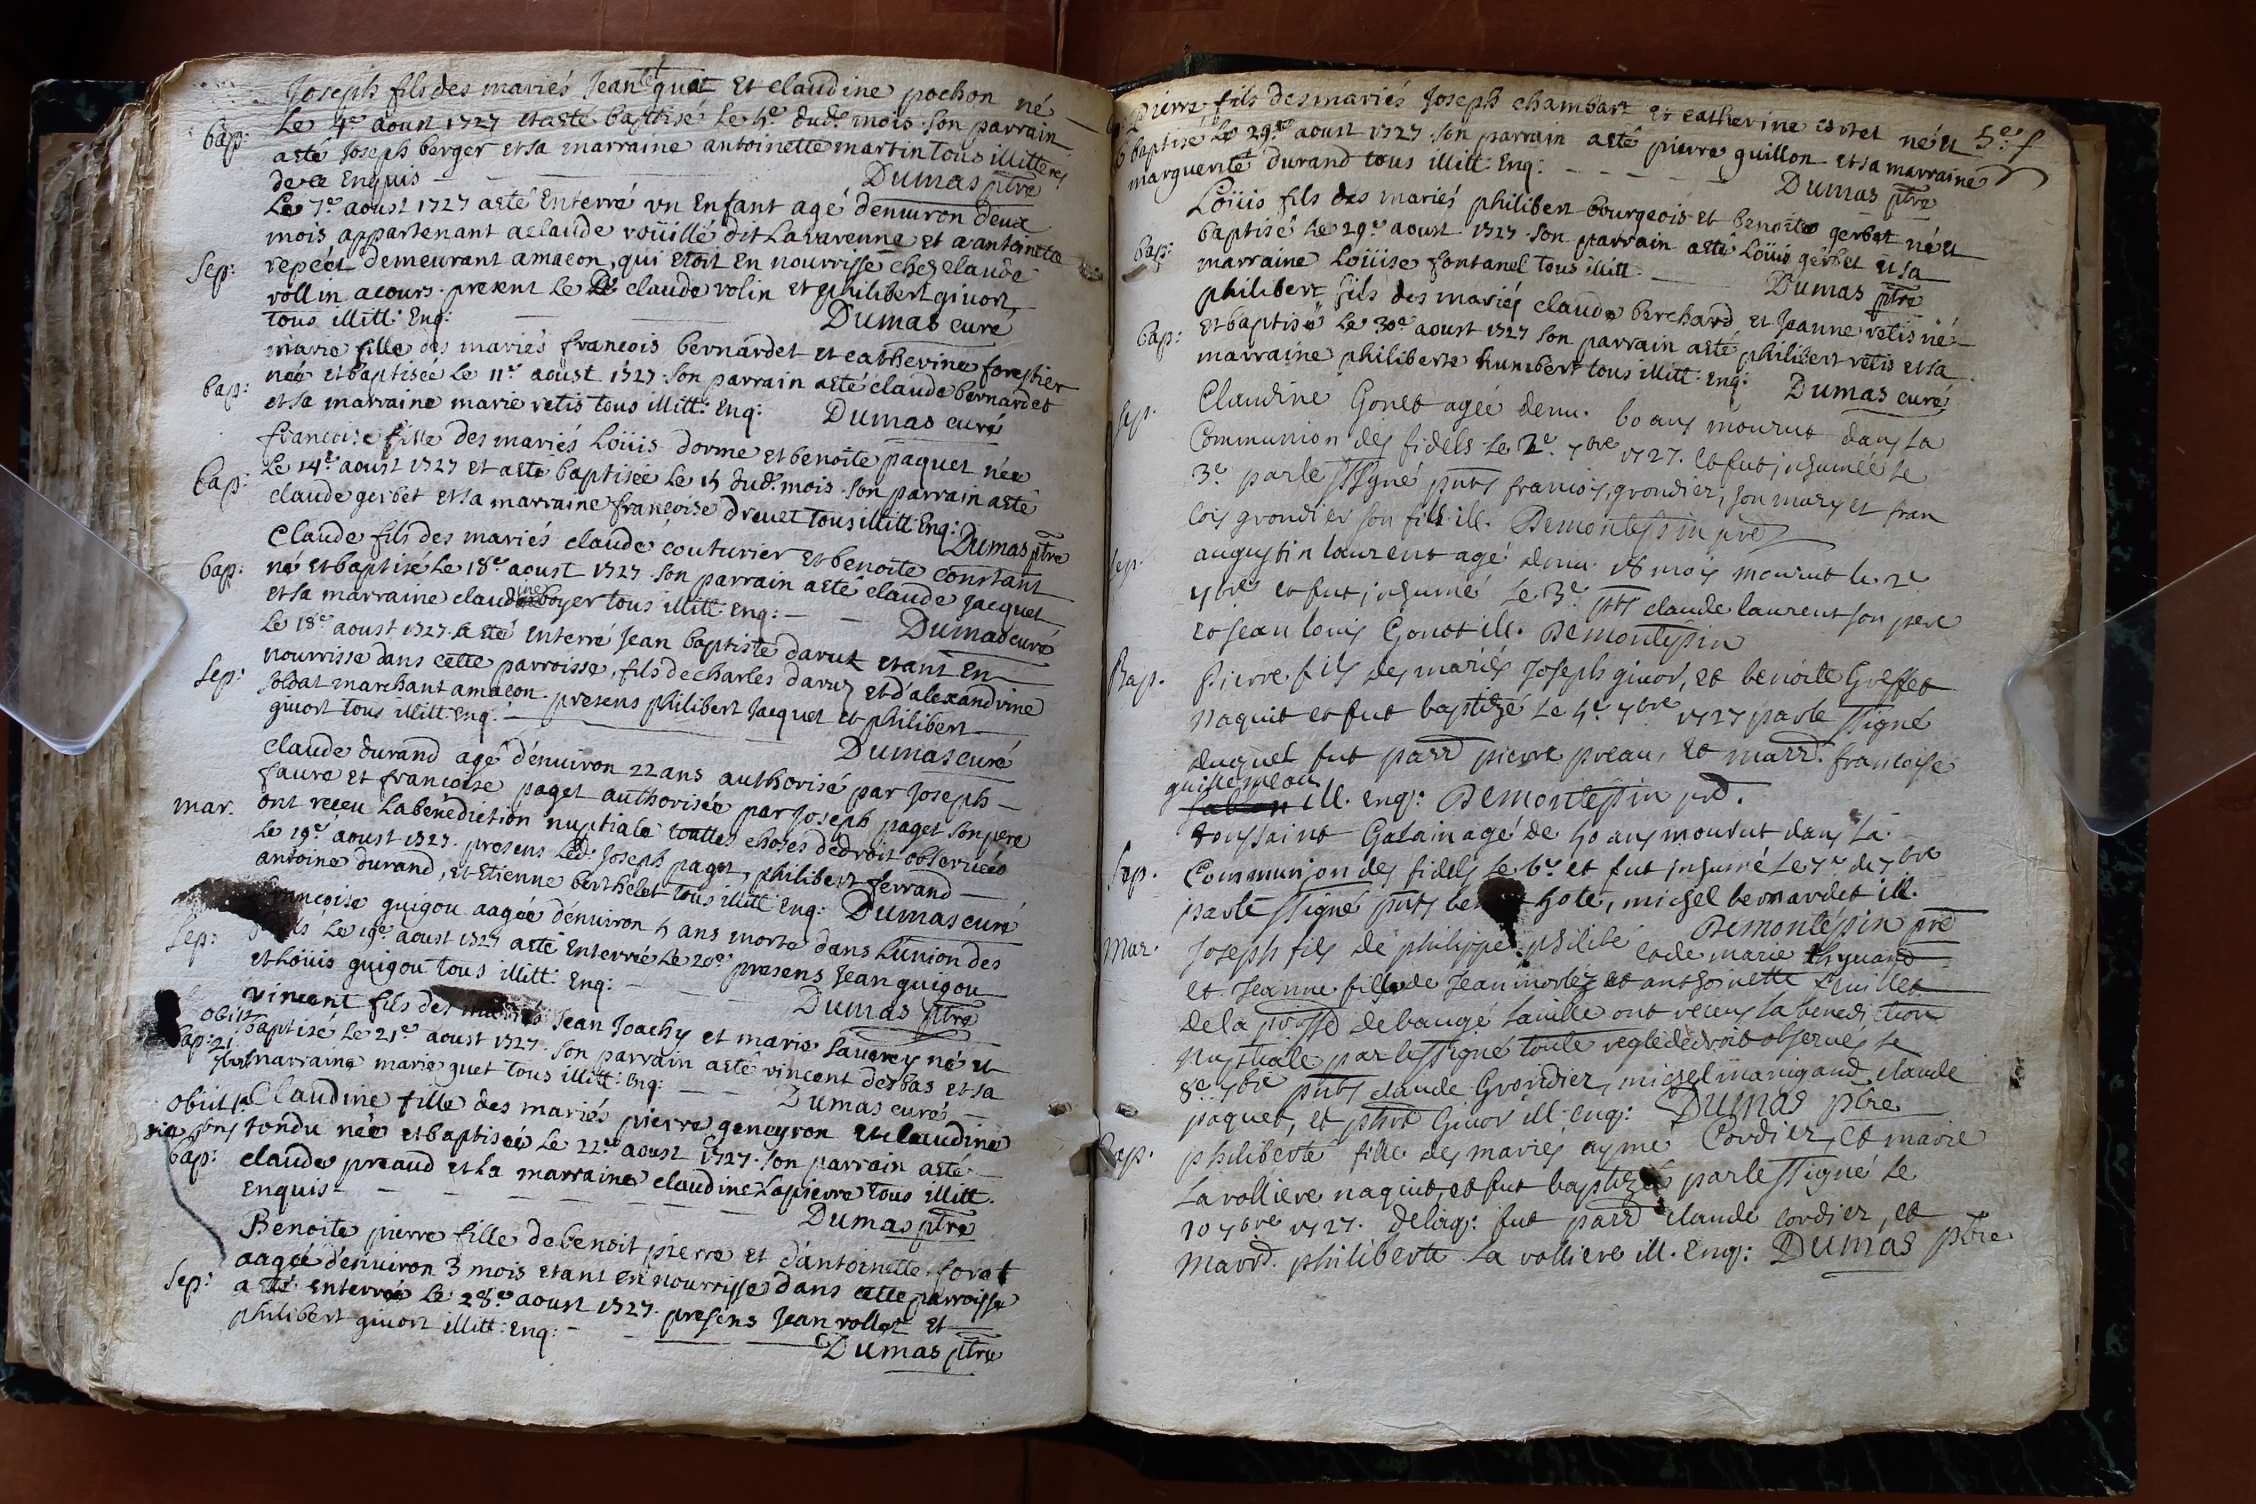 Joseph fils des mariés Jean quet Et claudine pochon né
bap: Le 4e aoust 1727 et a esté baptisé Le 5e dud. mois. Son parrain
a esté Joseph berger et sa marraine antoinette martin tous illitterés
de ce Enquis Dumas ptre
Le 7e aoust 1727 a esté Enterré un Enfant agé d'environ deux
mois appartenant a claude roüillé dit Lavarenne et a antoinette
Sep: repéet demeurant a macon, qui etoit En nourrisse chez claude
vollin a cours. present Le Dt claude volin et philibert givort
tous illitt: Enq: Dumas curé
marie fille des mariés francois bernardet et catherine forestier
bap: née et baptisée Le 11e aoust 1727. Son parrain a esté claude bernardet
et sa marraine marie vetis tous illitt: Enq: Dumas curé
francoise fille des mariés Loüis dorme et benoite paquet née
bap: Le 14e aoust 1727 et a esté baptisée Le 15 dud. mois. Son parrain a esté
claude gerbet et sa marraine françoise drevet tous illitt: Enq: Dumas ptre
Claude fils des mariés claude couturier et benoite constant
bap: né et baptisé Le 18e aoust 1727. Son parrain a esté claude Jacquet
et sa marraine claudine boyer tous illitt: Enq: Dumas curé
Le 18e aoust 1727. a esté Enterré Jean baptiste davut etant En
nourrisse dans cette parroisse, fils de charles davuz et d'alexandrine
Sep: Soldat marchant a macon. presens philibert Jacquet et philibert
givort tous illitt: Enq: Dumas curé
claude durand agé d'environ 22 ans authorisé par Joseph
faure et francoise paget authorisée par Joseph paget son pere
mar. ont reçeu La bénédiction nuptiale touttes choses de droit observées
Le 19e aoust 1727. presens Led. Joseph paget, philibert ferrand
antoine durand, et Etienne berthelet tous illitt: Enq: Dumas curé
francoise guigou aagée d'environ 5 ans morte dans L'union des
Sep: Le 19e aoust 1727 a esté Enterrée Le 20e presens Jean guigou
et Loüis guigou tous illitt: Enq: Dumas ptre
vincent fils des mariés Jean Joachy et marie Sauvrey né et
obiit bap: 21 baptisé Le 21e aoust 1727. Son parrain a esté vincent desbas et sa
marraine marie guet tous illitt: Enq: Dumas curé
obiit Claudine fille des mariés pierre geneyron et claudine
tondu née et baptisée Le 22e aoust 1727. Son parrain a esté
bap: claude preaud et La marraine claudine Lapierre tous illitt.
Enquis Dumas ptre
Benoite pierre fille de benoit pierre et d'antoinette forat
aagée d'environ 3 mois etant En nourrisse dans cette parroisse
Sep: a esté Enterrée Le 28e aoust 1727. presens Jean rollet et
philibert givort illitt: Enq: Dumas ptre
Pierre fils des mariés Joseph chambart Et catherine cortet né et 5e f
baptisé Le 29e aoust 1727. Son parrain a esté pierre guillon et sa marraine
marguerite durand tous illitt: Enq: Dumas ptre
Loüis fils des mariés philibert bourgeois et benoite gerbet né et
bap: baptisé Le 29e aoust 1727. Son parrain a esté Loüis gerbet et sa
marraine Loüise fontanel tous illitt. Dumas ptre
philibert fils des mariés claude berchard et Jeanne vetis né
bap: Et baptisé Le 30e aoust 1727 Son parrain a esté philibert vetis et sa
marraine philiberte humbert tous illitt. Enq: Dumas curé
Sep. Claudine Gonet agée denv. 60 ans mourut dans La
Communion des fidels Le 2e 7bre 1727. et fut inhumée le
3e par le ssigné pnts francois grondier, son mary et fran
cois grondier son fils ill. Demontessin pre
Sep. augustin laurent agé denv. 18 mois mourut le 2e
7bre et fut inhumé Le 3e pnts claude laurent son pere
et Jean louis Gonet ill. Demontessin
Bap. Pierre fils des mariés Joseph givor, et benoite Greffet
naquit et fut baptizé Le 5e 7bre 1727 par le ssigné
duquel fut parr pierre preau, et marr. francoise
guillemeau ill. enq: Demontessin pre.
toussaint Galain agé de 50 ans mourut dans La
Sep. Communion des fidels Le 6e et fut inhumé Le 7e de 7bre
par le ssigné pnts hote, michel bernardet ill.
Demontessin pre
Mar. Joseph fils de philippe philibé et de marie thynand
et Jeanne fille de Jean morlez et anthoinette
de la prosse de baugé la ville ont receus la benediction
nuptiale par le ssigné toute regle de droit observés le
8e 7bre pnts claude Grondier, michel manigand, claude
paquet, et phbt Givor ill. enq: Dumas ptre
Bap. philiberte fille des mariés aymé Cordier et marie
La volliere naquit, et fut baptizée par le ssigné Le
10 7bre 1727. delaq: fut parr claude cordier, et
marr. philiberte La volliere ill. Enq: Dumas ptre